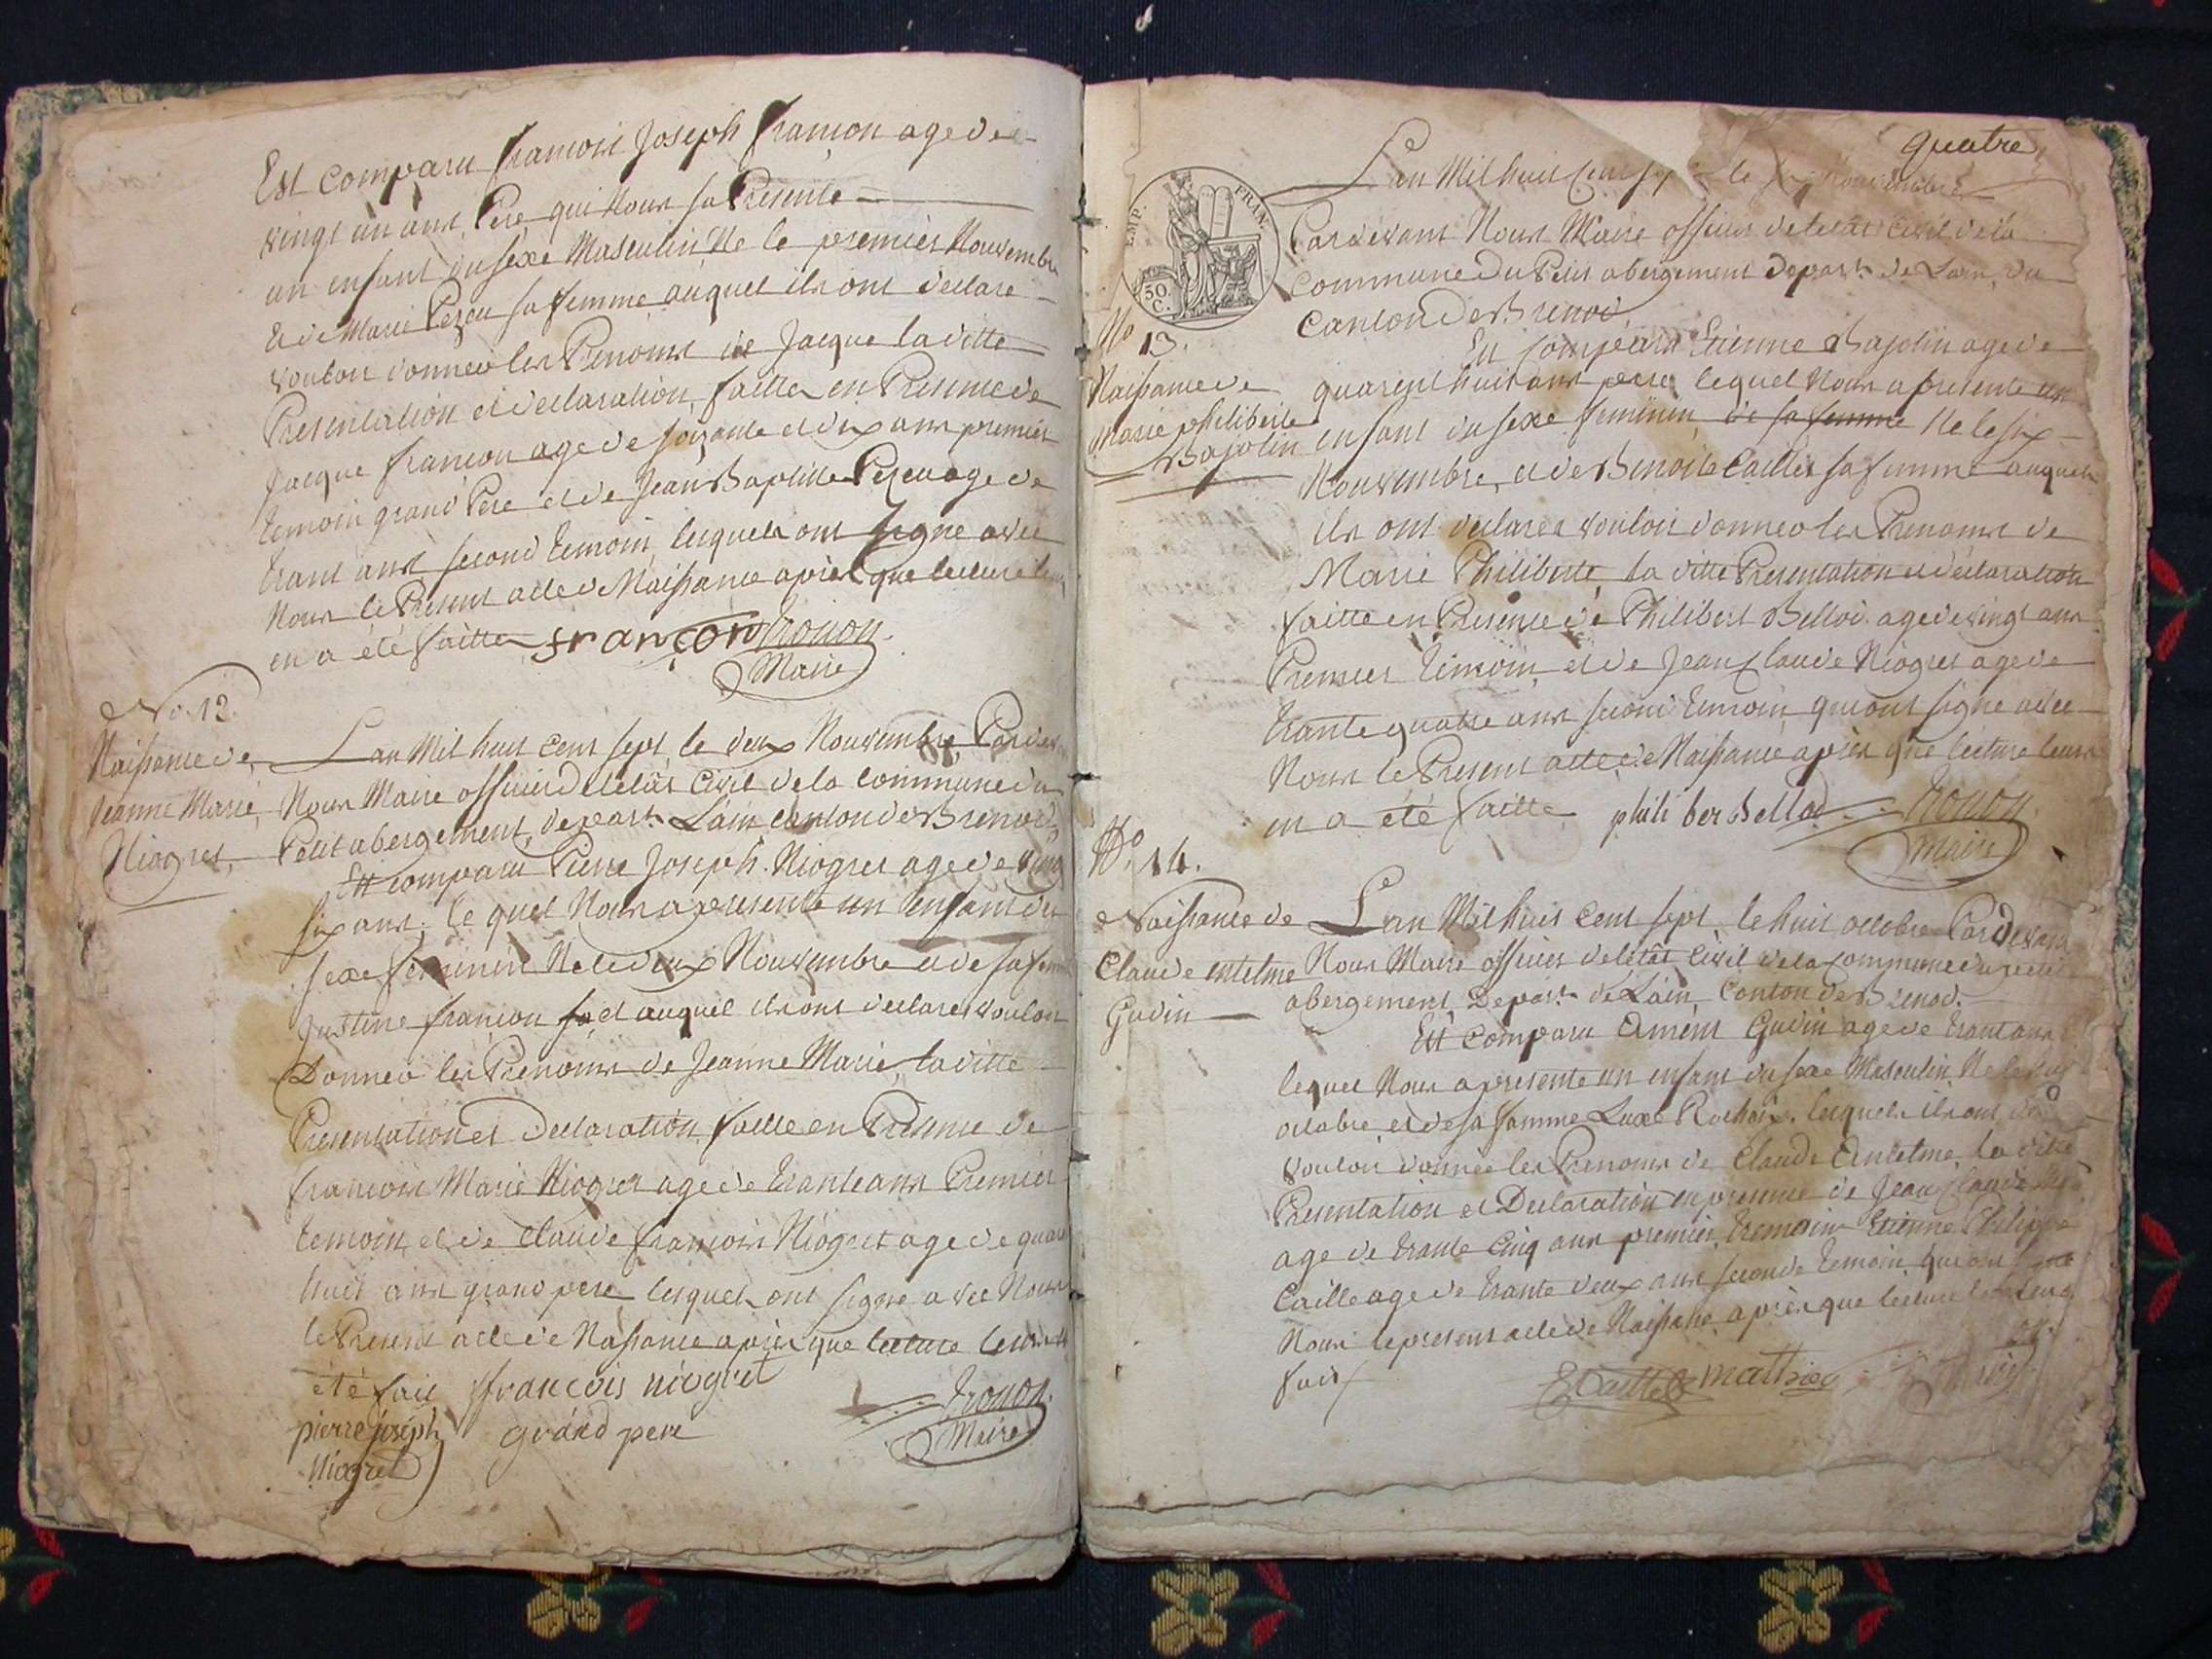 Est comparu francois Joseph françon age de
vingt un ans, Pere, qui Nous sa Presente
un enfant du sexe Masculin Ne le premier Nouvembre
& de Marie Pezeu sa femme auquel ils ont declare
vouloir donner les Prenoms de Jacque la ditte
Presentation et declaration, faitte en Presence de
Jacque françon age de soizante et dix ans premier
temoin grand Pere et de Jean Baptiste Pezeu age de
trant ans second temoin, lesquels ont signe avec
Nous le Present acte de Naissance apres que lecture leurs
en a été faitte françon tronon
Maire
No. 12.
Naissance de
Jeanne Marie
Niogret
Lan Mil huit cent sept le deux Nouvembre Pardev
Nous Maire officier de letat Civil de la commune du
Petit abergement, depart. Lain canton de Brenod
Est comparu Pierre Joseph Niogret age de vingt
six ans, le quel Nous a presente un enfant du
sexe feminin Ne le deux Nouvembre et de sa femme
Justine françon et auquel ils ont declarer vouloir
Donner les Prenoms de Jeanne Marie, la ditte
Presentation et Declaration faitte en Presence de
francois Marie Niogret age de trante ans Premier
temoin et de Claude francois Niogret age de quara
huit ans grand pere lesquels ont signe avec Nous
le Present acte de Naissance apres que lecture leurs
été fait ffrancois niogret
pierre joseph grand pere
Niogret
tronon.
Maire
quatre
EMP. FRAN.
50 C.
Lan Mil huit Cent sept le six Nouvembre
Pardevant Nous Maire officier de letat Civil de la
Commune Du Petit abergement Depart. de Lain, du
Canton De Brenod
No 13.
Naissance de
Marie Philiberte
Bajolin
Est Comparu Etienne Bajolin age de
quarent huit ans pere lequel Nous a presente un
enfant du sexe feminin de sa femme Ne le six
Nouvembre, et de Benoite Caillet sa femme auquels
ils ont declarer vouloir donner les Prenoms de
Marie Philiberte, la ditte Presentation et declaration
faitte en Presence de Philibert Bellod age de vingt ans
Premier temoin et de Jean Claude Niogret age de
trante quatre ans second temoin, qui ont signe avec
Nous le Present acte de Naissance apres que lecture leurs
en a été faitte phili ber Bellod tronon
Maire
No. 14.
Naissance de
Claude entelme
Gudin
Lan Mil huit Cent sept le huit octobre Pardevant
Nous Maire officier de letat Civil de la Commune du petit
abergement, Depart. de Lain Canton de Brenod.
Est comparu Gudin age de trant ans
lequel Nous a presente un enfant du sexe Masculin Ne le huit
octobre, et de sa famme lesquels ils ont
vouloir donner les Prenoms de Claude Entelme, la ditte
Presentation et Declaration en presence de Jean Claude
age de trante cinq ans premier temoin Etienne Philippe
Caille age de trante deux ans seconde temoin, qui ont signe
Nous le present acte de Naissance, apres que lecture leurs
fait
E Caille mathieu